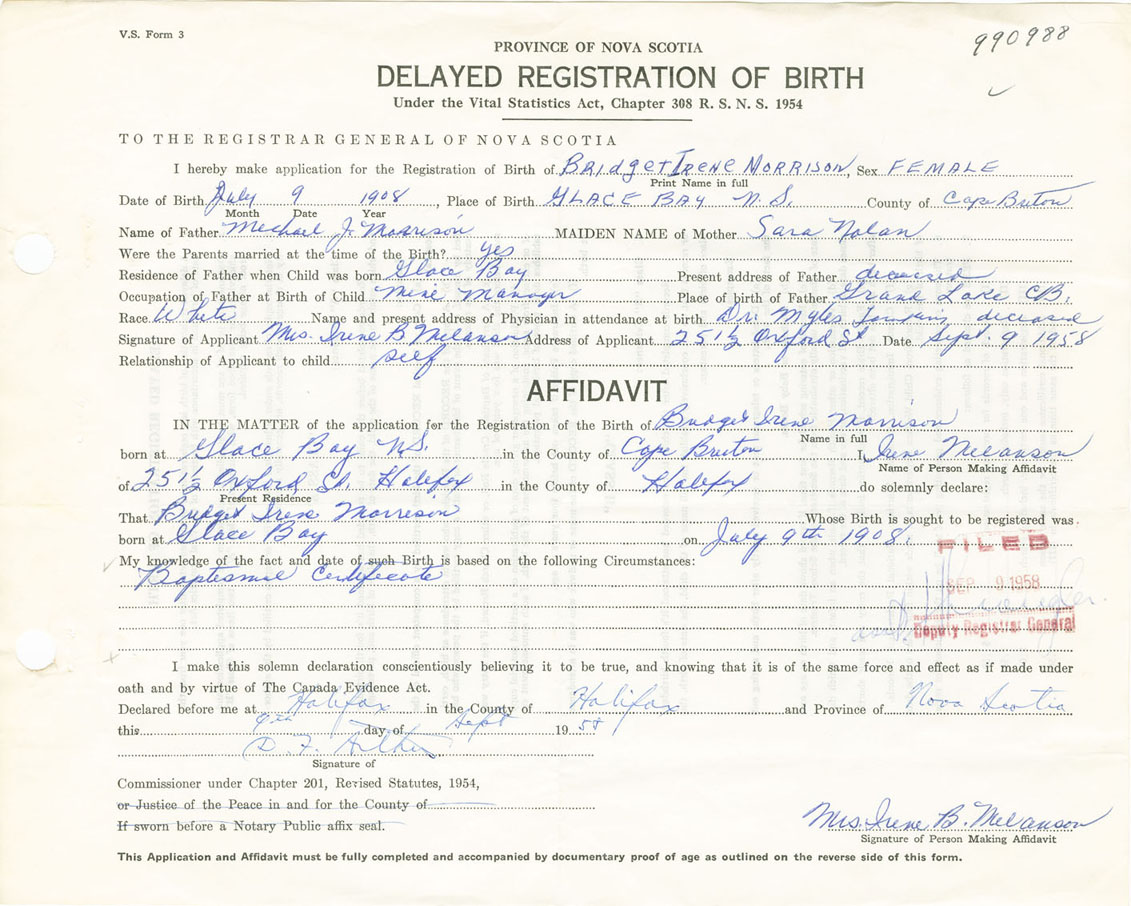 V.S. Form 3
990988
PROVINCE OF NOVA SCOTIA
DELAYED REGISTRATION OF BIRTH
Under the Vital Statistics Act, Chapter 308 R. S. N. S. 1954
TO THE REGISTRAR GENERAL OF NOVA SCOTIA
I hereby make application for the Registration of Birth of BRIDGET IRENE MORRISON, Sex FEMALE
Print Name in full
Date of Birth July 9 1908, Place of Birth GLACE BAY N.S. County of Cape Breton
Month Date Year
Name of Father Michael J. Morrison MAIDEN NAME of Mother Sara Nolan
Were the Parents married at the time of the Birth? yes
Residence of Father when Child was born Glace Bay Present address of Father deceased
Occupation of Father at Birth of Child Mine Manager Place of birth of Father Grand Lake CB.
Race White Name and present address of Physician in attendance at birth Dr. Myles deceased
Signature of Applicant Mrs. Irene B Melanson Address of Applicant 25 1/2 Oxford St Date Sept. 9 1958
Relationship of Applicant to child self
AFFIDAVIT
IN THE MATTER of the application for the Registration of the Birth of Bridget Irene Morrison
Name in full
born at Glace Bay N.S. in the County of Cape Breton I, Irene Melanson
Name of Person Making Affidavit
of 25 1/2 Oxford St. Halifax in the County of Halifax do solemnly declare:
Present Residence
That Bridget Irene Morrison Whose Birth is sought to be registered was
born at Glace Bay on July 9th 1908.
FILED
My knowledge of the fact and date of such Birth is based on the following Circumstances:
Baptismal Certificate
SEP 9 1958
asst. Deputy Registrar General
I make this solemn declaration conscientiously believing it to be true, and knowing that it is of the same force and effect as if made under
oath and by virtue of The Canada Evidence Act.
Declared before me at Halifax in the County of Halifax and Province of Nova Scotia
this 9th day of Sept 1958
D. F.
Signature of
Commissioner under Chapter 201, Revised Statutes, 1954,
or Justice of the Peace in and for the County of
If sworn before a Notary Public affix seal.
Mrs. Irene B. Melanson
Signature of Person Making Affidavit
This Application and Affidavit must be fully completed and accompanied by documentary proof of age as outlined on the reverse side of this form.